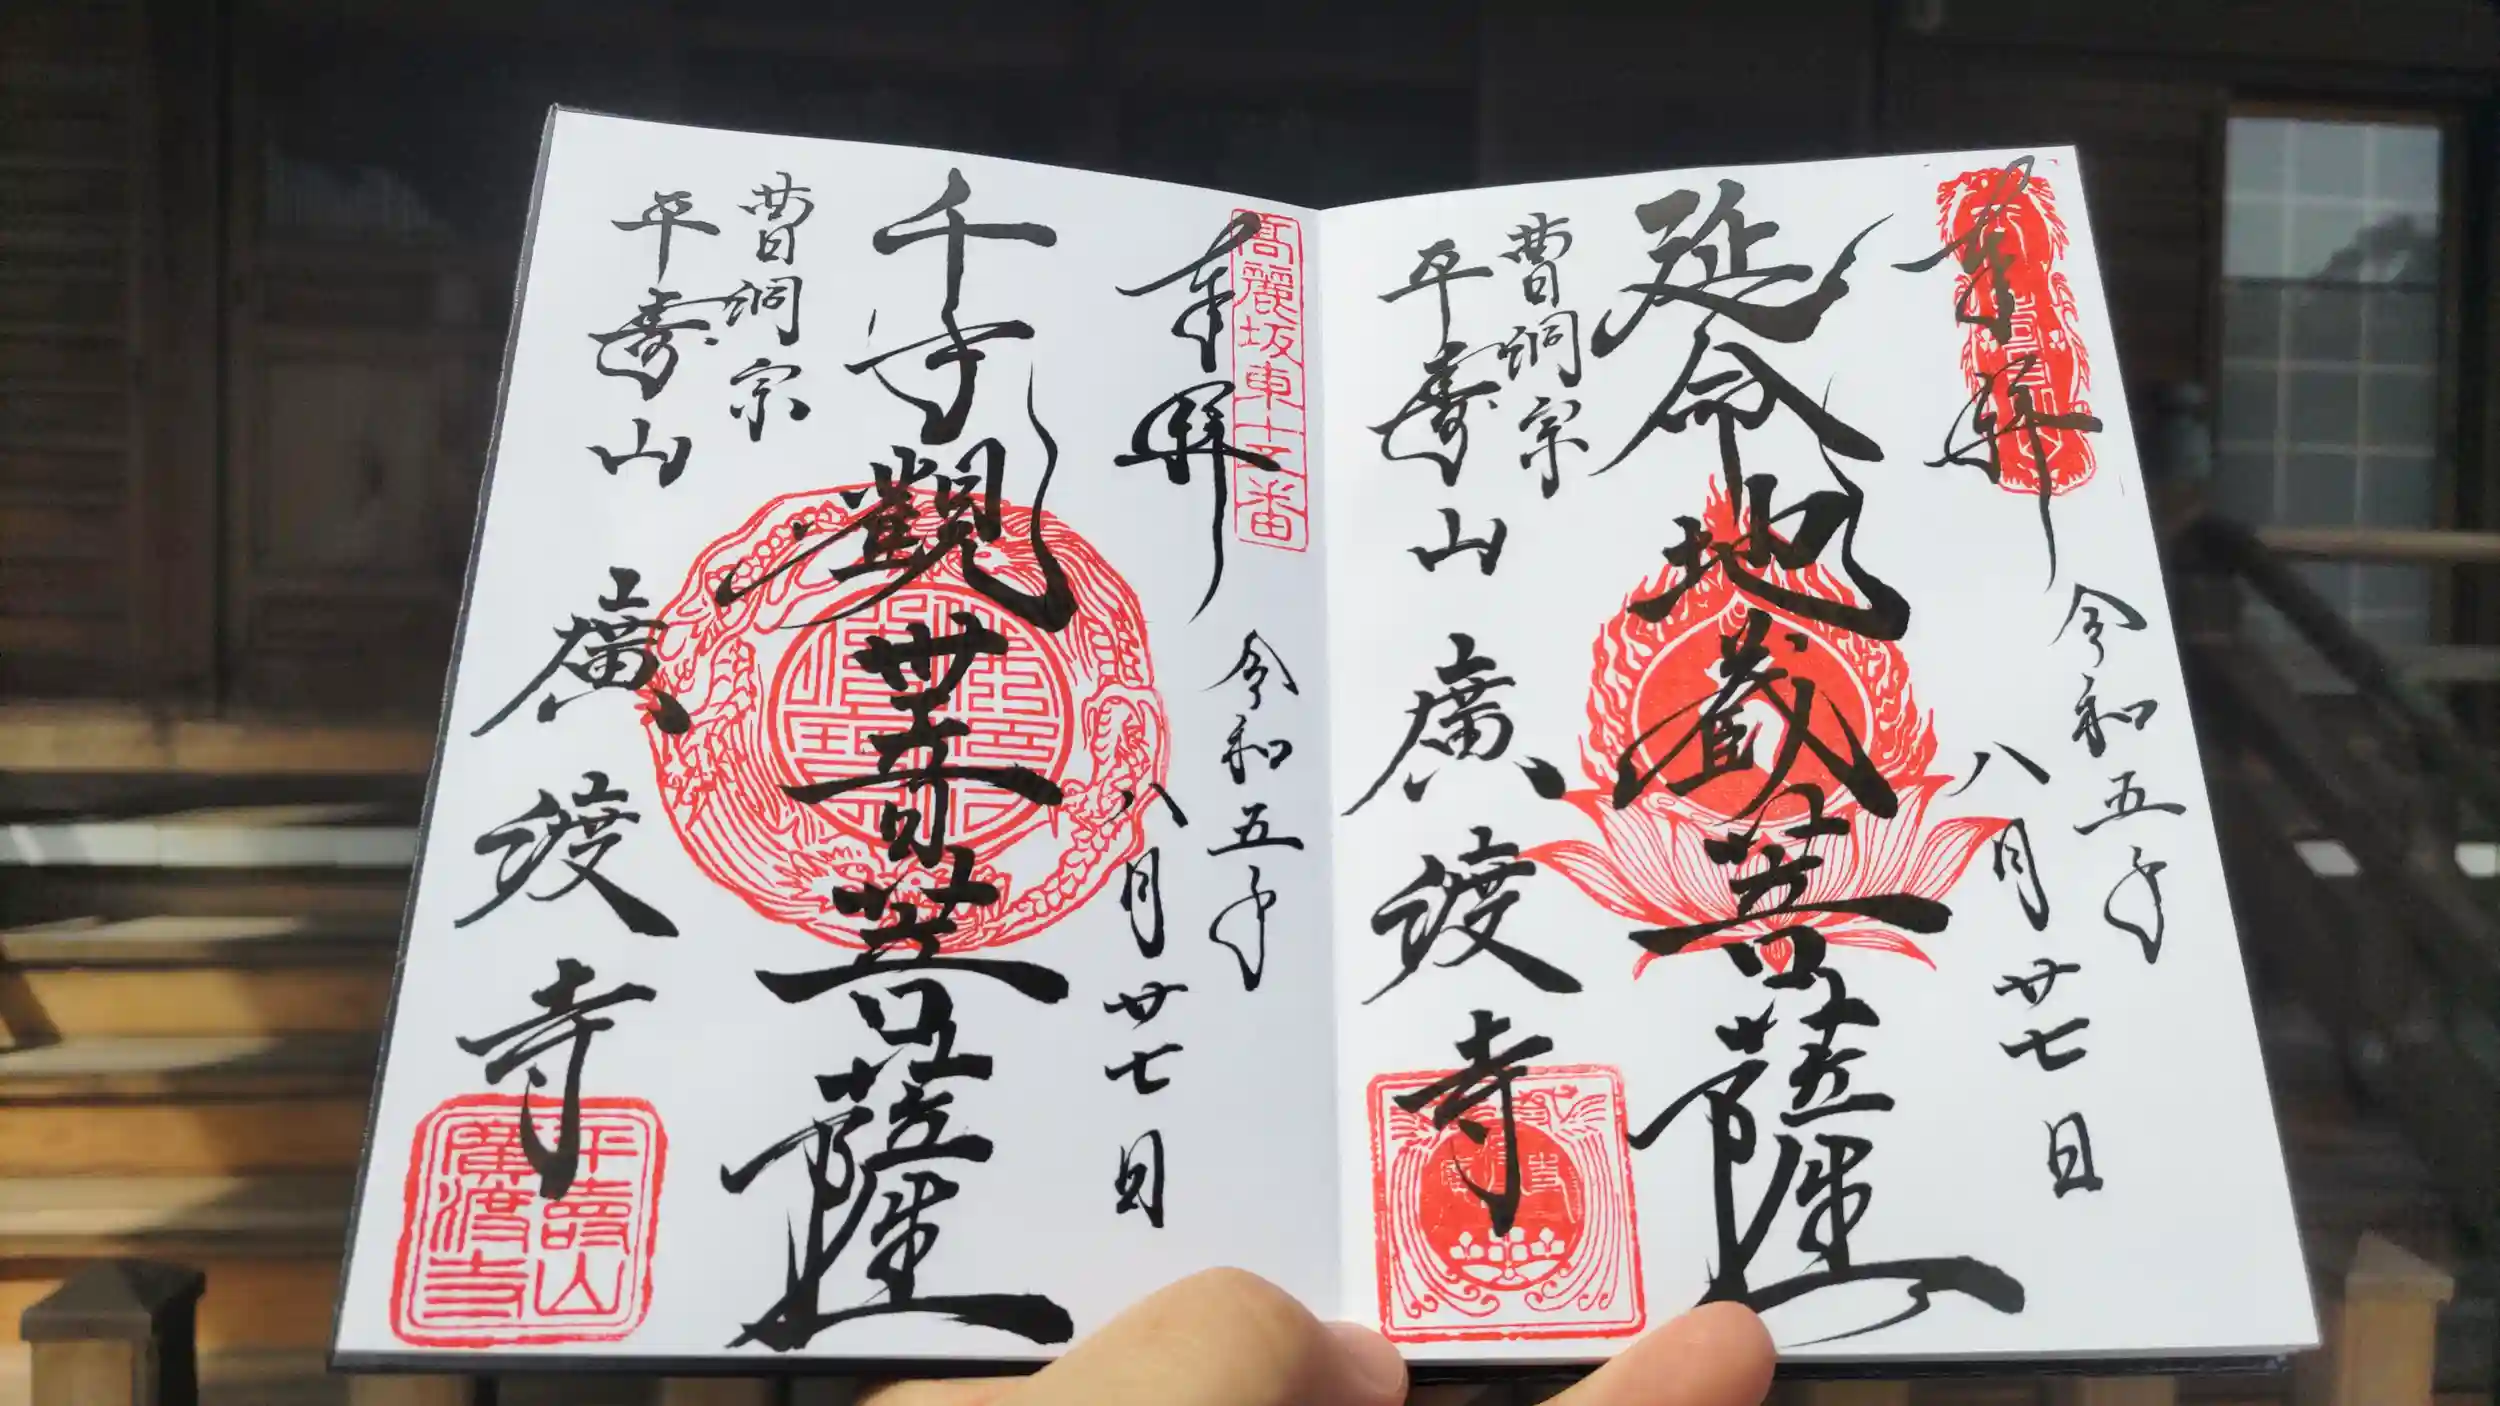 奉拝
令和五年
八月廿七日
延命地蔵菩薩
曹洞宗
平壽山
廣渡寺
高麗坂東十二番
奉拝
令和五年
八月廿七日
千手觀世音菩薩
曹洞宗
平壽山
廣渡寺
平壽山
廣渡寺